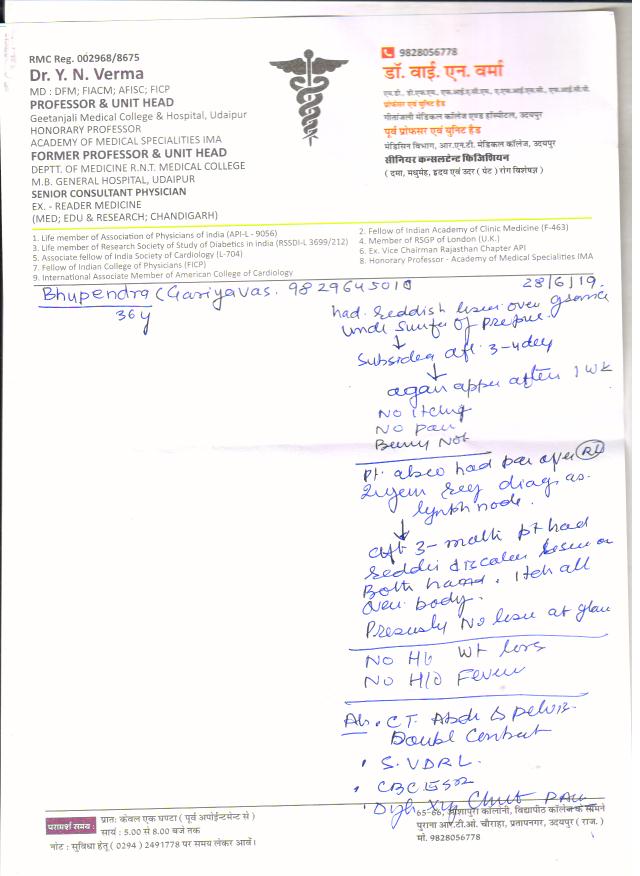 RMC Reg. 002968/8675
Dr. Y. N. Verma
MD : DFM; FIACM; AFISC; FICP
PROFESSOR & UNIT HEAD
Geetanjali Medical College & Hospital, Udaipur
HONORARY PROFESSOR
ACADEMY OF MEDICAL SPECIALITIES IMA
FORMER PROFESSOR & UNIT HEAD
DEPTT. OF MEDICINE R.N.T. MEDICAL COLLEGE
M.B. GENERAL HOSPITAL, UDAIPUR
SENIOR CONSULTANT PHYSICIAN
EX. - READER MEDICINE
(MED; EDU & RESEARCH; CHANDIGARH)
9828056778
डॉ. वाई. एन. वर्मा
प्रोफेसर एवं युनिट हैड
गीतांजली मेडिकल कॉलेज एण्ड हॉस्पिटल, उदयपुर
पूर्व प्रोफसर एवं यूनिट हैड
मेडिसिन विभाग, आर.एन.टी. मेडिकल कॉलेज, उदयपुर
सीनियर कन्सलटेन्ट फिजिशियन
( दमा, मधुमेह, हृदय एवं उदर ( पेट ) रोग विशेषज्ञ )
1. Life member of Association of Physicians of india (API-L - 9056)
3. Life member of Research Society of Study of Diabetics in india (RSSDI-L 3699/212)
5. Associate fellow of India Society of Cardiology (L-704)
7. Fellow of Indian College of Physicians (FICP)
9. International Associate Member of American College of Cardiology
2. Fellow of Indian Academy of Clinic Medicine (F-463)
4. Member of RSGP of London (U.K.)
6. Ex. Vice Chairman Rajasthan Chapter API
8. Honorary Professor - Academy of Medical Specialities IMA
Bhupendra (Gariyavas. 9829645010
28/6/19.
36 y
had reddish lesion over
Subsided aft 3-4 day
again after 1 wk
No itching
No pain
Pt. also had over Rt
diag as.
lymph node.
3- pt had
on
Both hand. Itch all
over body.
No
No H/o Wt loss
No H/o Fever
Adv. CT. Abdo & pelvis.
Double Contrast
S. VDRL.
CBC ESR
परामर्श समय :
प्रातः केवल एक घण्टा ( पूर्व अपोईन्टमेन्ट से )
सायं : 5.00 से 8.00 बजे तक
नोट : सुविधा हेतु ( 0294 ) 2491778 पर समय लेकर आवें।
65-66, कॉलोनी, विद्यापीठ कॉलेज के सामने
पुराना आर.टी.ओ. चौराहा, प्रतापनगर, उदयपुर ( राज. )
मो. 9828056778